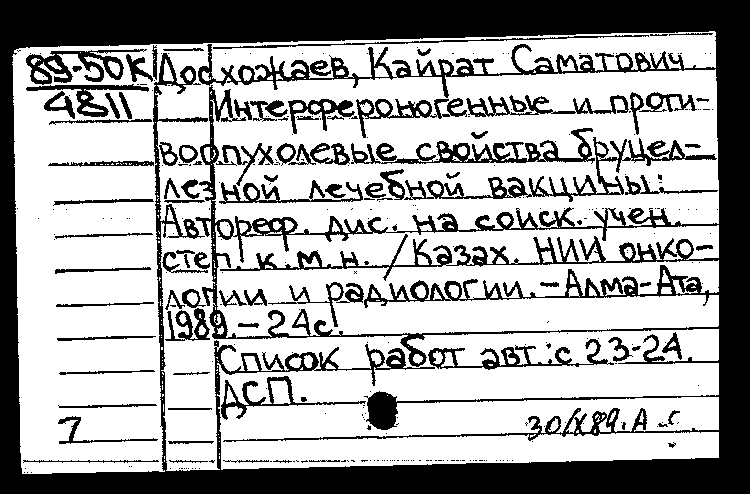 89-50К Досхожаев, Кайрат Саматович.
4811 Интерфероногенные и проти-
воопухолевые свойства бруцел-
лезной лечебной вакцины:
Автореф. дис. на соиск. учен.
степ. к.м.н. /Казах. НИИ онко-
логии и радиологии.-Алма-Ата,
1989.-24с.
Список работ авт.:с.23-24.
ДСП.
7 30/X89.А